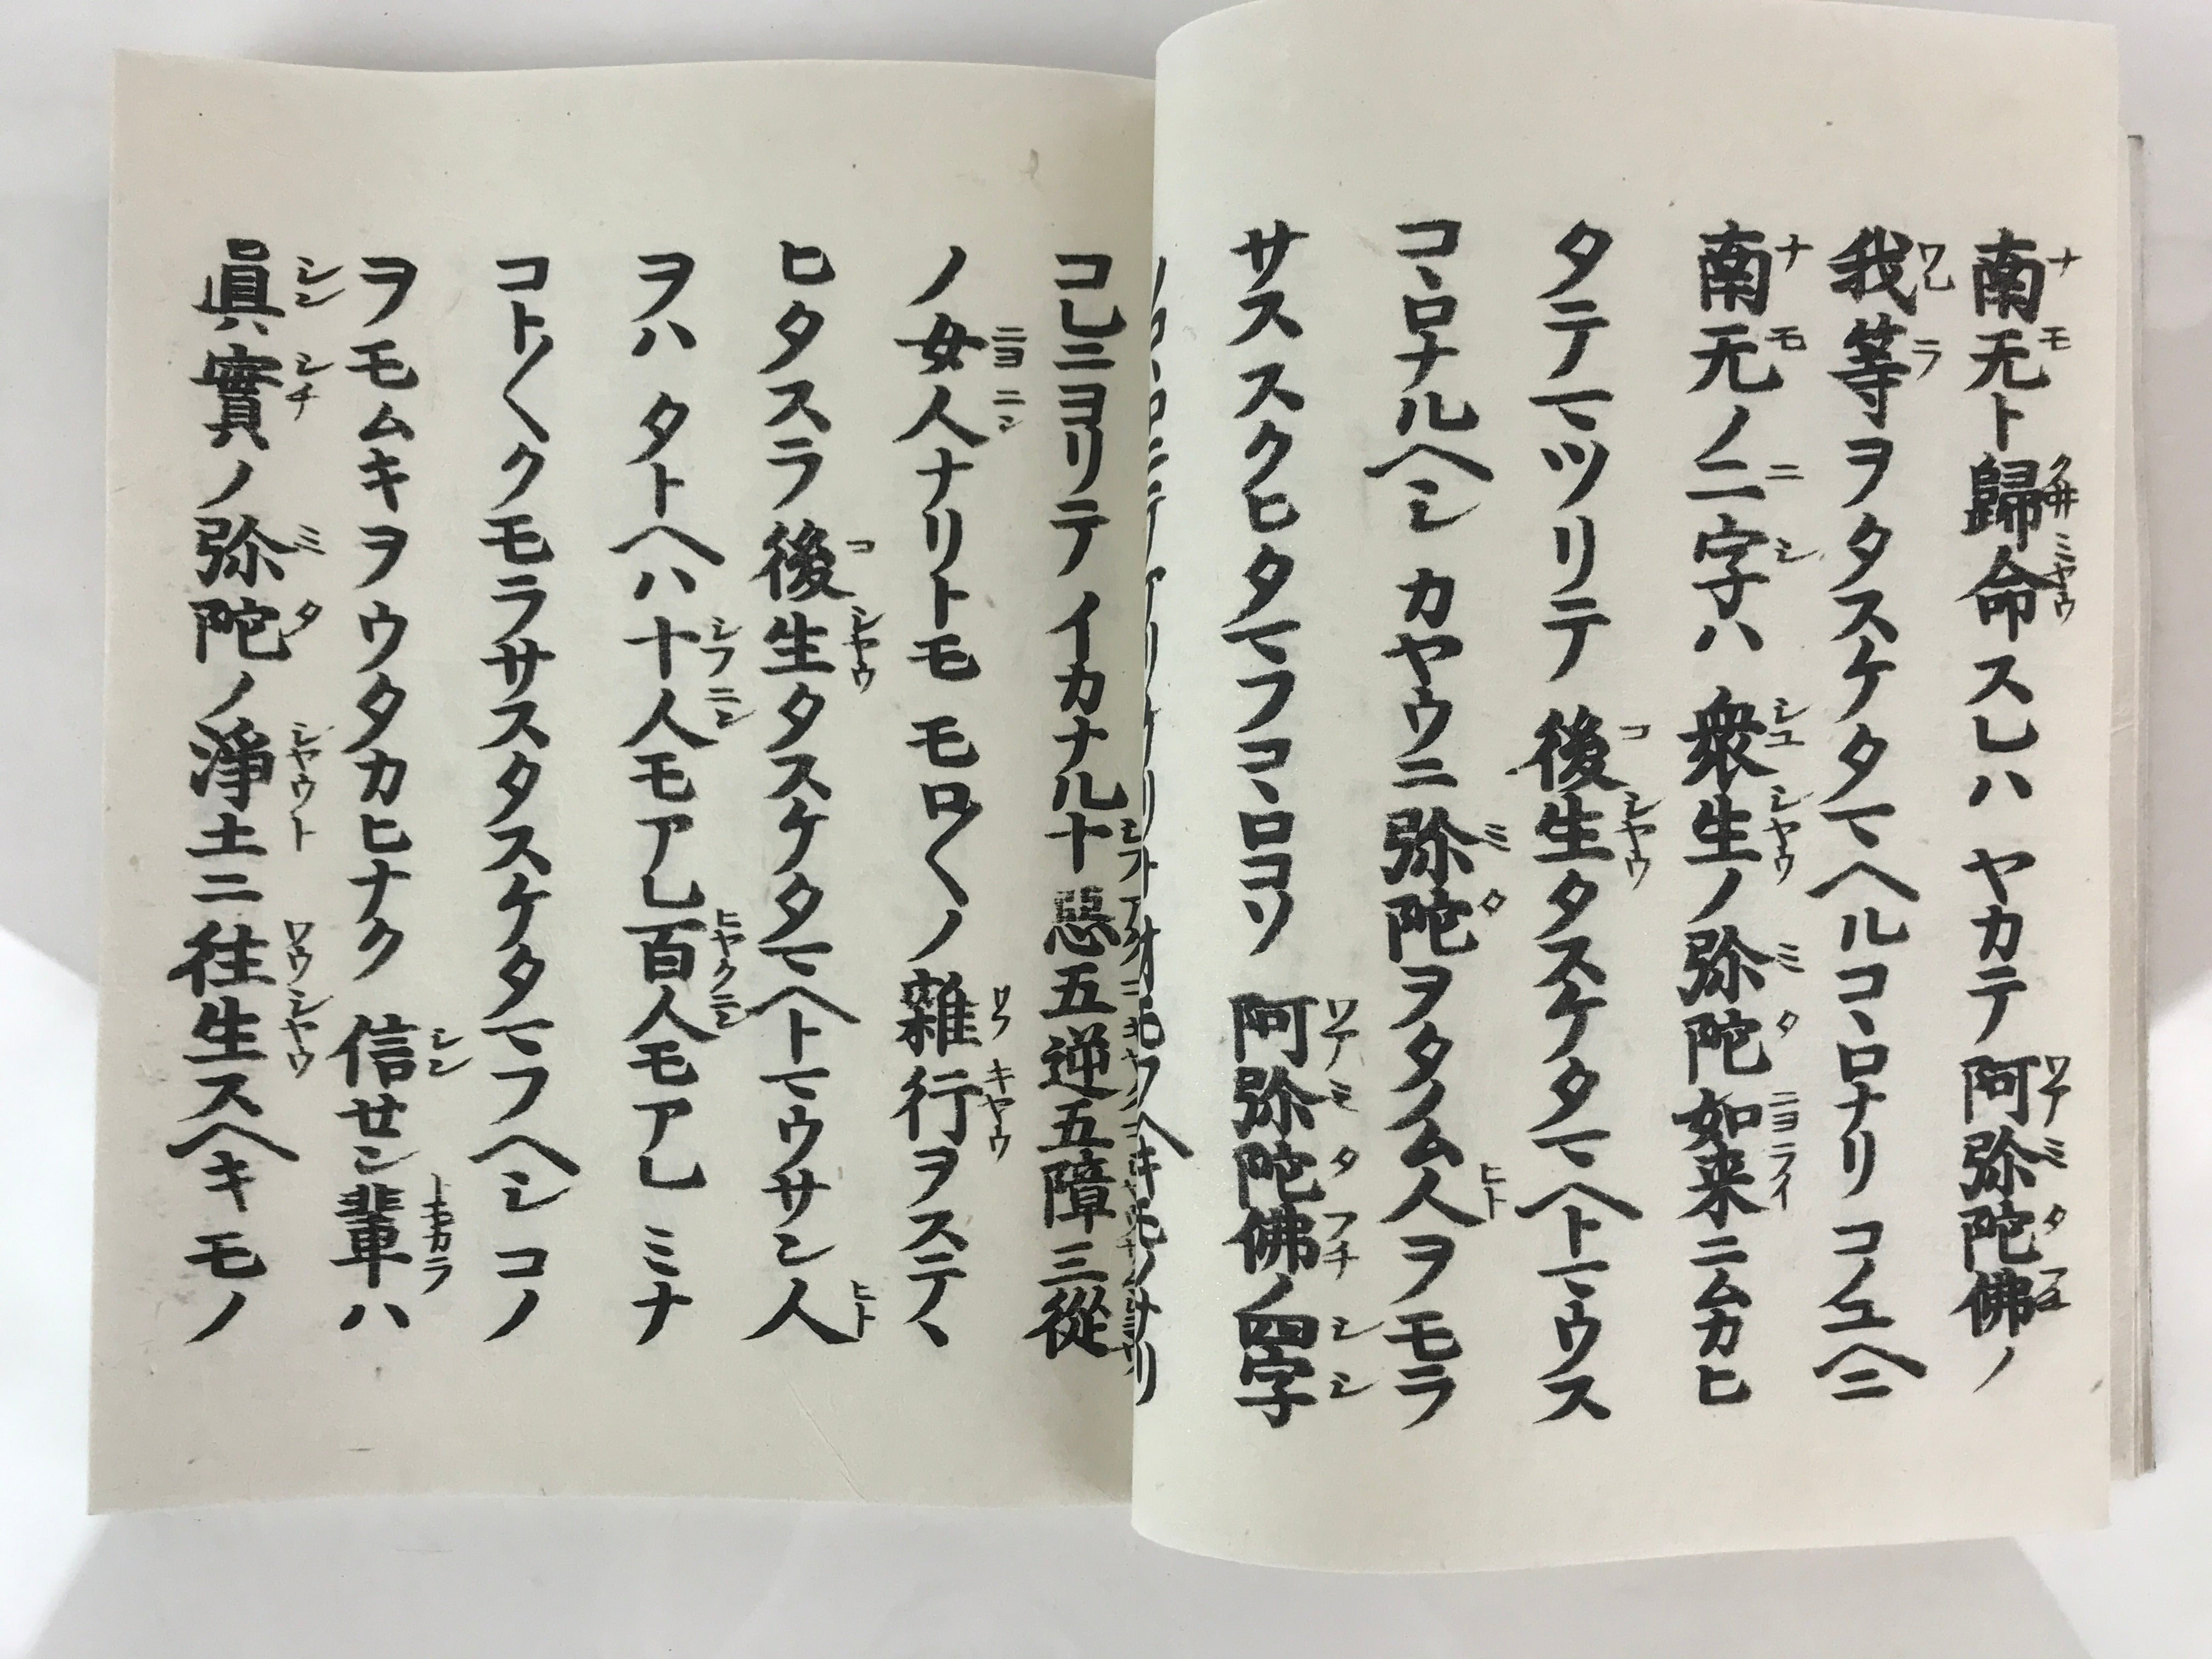 南无ト歸命スレハ ヤカテ阿弥陀佛ノ
我等ヲタスケタマヘルコヽロナリ コノユヘニ
南无ノ二字ハ 衆生ノ弥陀如来ニムカヒ
タテマツリテ 後生タスケタマヘトマウス
コヽロナルヘシ カヤウニ弥陀ヲタノム人ヲモラ
サススクヒタマフコヽロコソ 阿弥陀佛ノ四字
ノコヽロニテアリケリトオモフヘキモノナリ
コレニヨリテ イカナル十惡五逆五障三從
ノ女人ナリトモ モロ〱ノ雜行ヲステヽ
ヒタスラ後生タスケタマヘトマウサン人
ヲハ タトヘハ十人モアレ百人モアレ ミナ
コト〱クモラサスタスケタマフヘシ コノ
ヲモムキヲウタカヒナク 信セン輩ハ
眞實ノ弥陀ノ淨土ニ往生スヘキモノ